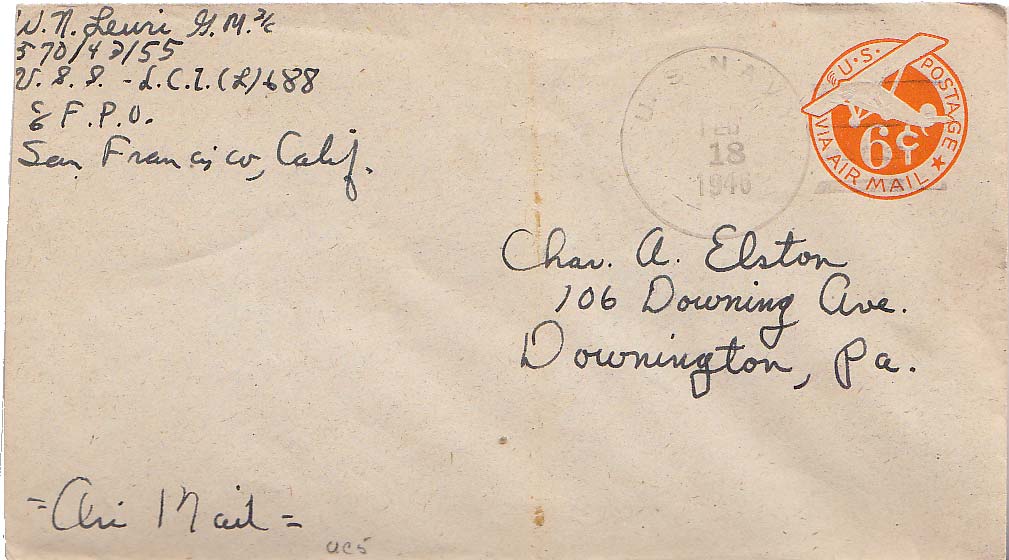 W. N. Lewis G.M. 3/c
570/43/55
U.S.S. - L.C.I.(L) 688
℅ F.P.O.
San Francisco, Calif.
U.S. NAVY
FEB
18
1946
U.S. POSTAGE
6¢
VIA AIR MAIL
Chas. A. Elston
106 Downing Ave.
Downington, Pa.
= Air Mail =
UC5